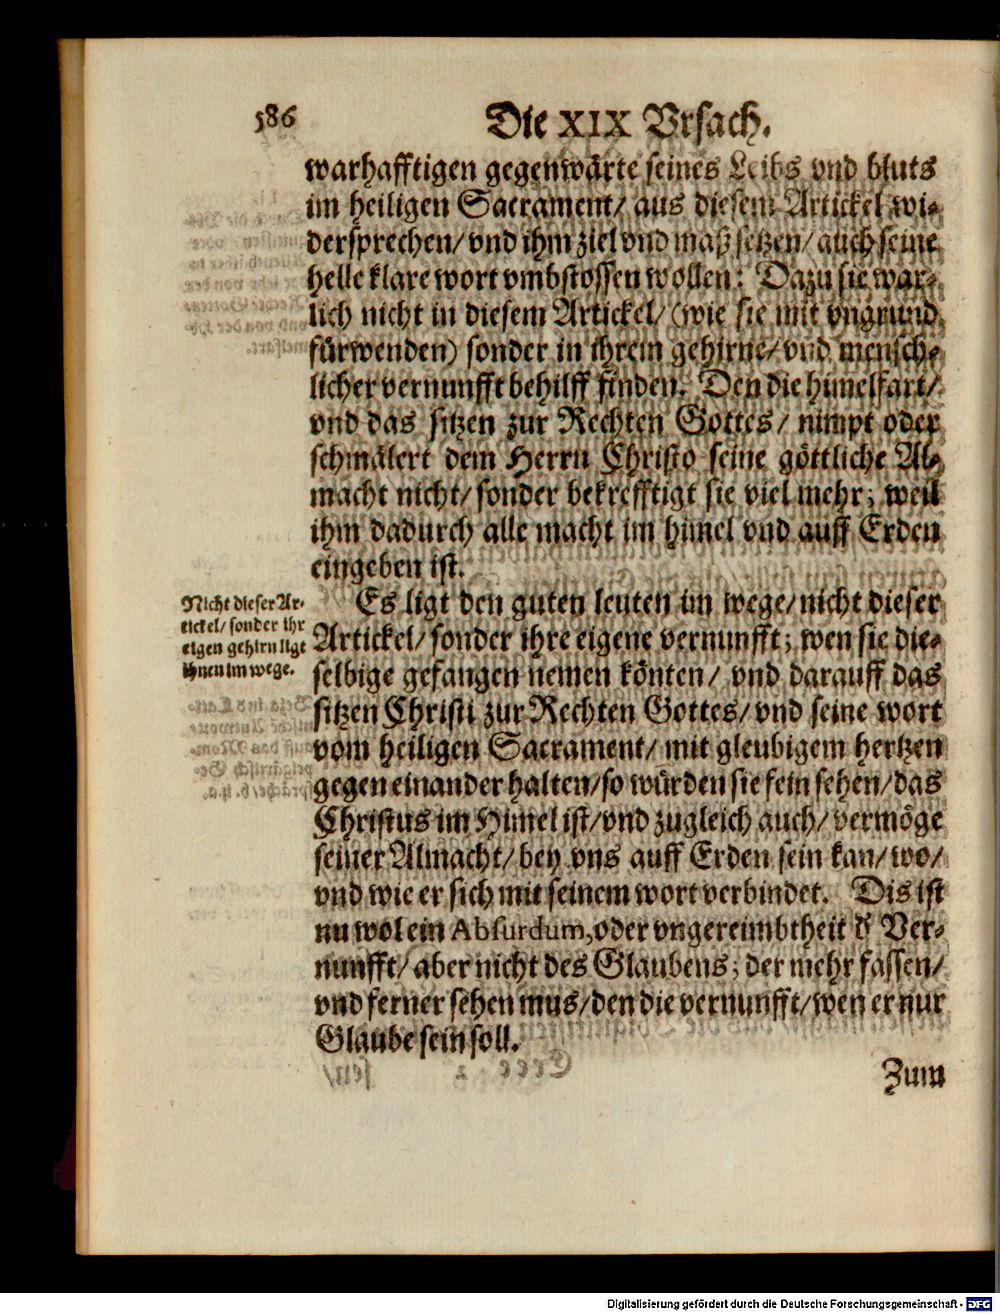 586
Die XIX Vrsach.
warhafftigen gegenwärte seines Leibs vnd bluts
im heiligen Sacrament/ aus diesem Artickel wi-
dersprechen/ vnd ihm ziel vnd maß setzen/ auch seine
helle klare wort vmbstossen wollen: Dazu sie war-
lich nicht in diesem Artickel/ (wie sie mit vngrund
fürwenden) sonder in ihrem gehirne/ vnd mensch-
licher vernunfft behilff finden. Den die himelfart/
vnd das sitzen zur Rechten Gottes/ nimpt oder
schmälert dem Herrn Christo seine göttliche Al-
macht nicht/ sonder bekrefftigt sie viel mehr; weil
ihm dadurch alle macht im himel vnd auff Erden
eingeben ist.
Nicht dieser Ar-
tickel/ sonder ihr
eigen gehirn ligt
ihnen im wege.
Es ligt den guten leuten im wege/ nicht dieser
Artickel/ sonder ihre eigene vernunfft; wen sie die-
selbige gefangen nemen könten/ vnd darauff das
sitzen Christi zur Rechten Gottes/ vnd seine wort
vom heiligen Sacrament/ mit gleubigem hertzen
gegen einander halten/ so würden sie fein sehen/ das
Christus im Himel ist/ vnd zugleich auch/ vermöge
seiner Almacht/ bey vns auff Erden sein kan/ wo/
vnd wie er sich mit seinem wort verbindet. Dis ist
nu wol ein Absurdum, oder vngereimbtheit d' Ver-
nunfft/ aber nicht des Glaubens; der mehr fassen/
vnd ferner sehen mus/ den die vernunfft/ wen er nur
Glaube sein soll.
Zum
Digitalisierung gefördert durch die Deutsche Forschungsgemeinschaft - DFG